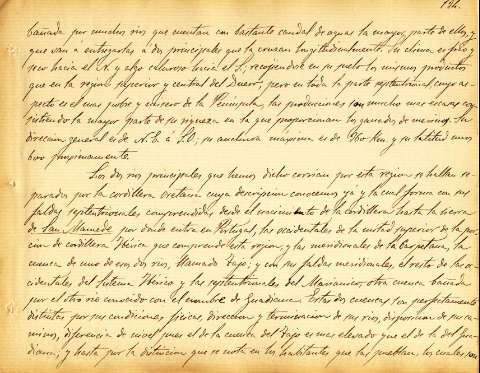 136.
bañada por muchos rios que cuentan con bastante caudal de aguas la mayor parte de ellos, y
que van a entregarlas á dos principales que la cruzan longitudinalmente. Su clima es frio y
seco hacia el N. y algo caluroso hacia el S., recogiendose en su suelo los mismos productos
que en la region superior y central del Duero; pero en toda la parte septentrional, cuyo as-
pecto es el mas pobre y misero de la Peninsula, las producciones son mucho mas escasas con-
sistiendo la mayor parte de su riqueza en la que proporcionan los ganados de merinos. Su
direccion general es de N.E. á S.O.; su anchura máxima es de Km. y su latitud unos
600 proximamente.
Los dos rios principales que hemos dicho corrian por esta region se hallan se-
parados por la cordillera Oretana cuya descripcion conocemos ya y la cual forma con sus
faldas septentrionales comprendidas desde el nacimiento de la cordillera hasta la sierra
de San Mamede por donde entra en Portugal, las occidentales de la mitad superior de la por-
cion de cordillera Ibérica que comprende esta region, y las meridionales de la Carpetana, la
cuenca de uno de esos dos rios, llamado Tajo; y con sus faldas meridionales, el resto de las oc-
cidentales del sistema Ibérico y las septentrionales del Marianico, otra cuenca bañada
por el otro rio conocido con el nombre de Guadiana. Estas dos cuencas son perfectamente
distintas por sus condiciones fisicas, direccion y terminacion de sus rios, disposicion de sus ca-
minos, diferencia de nivel pues el de la cuenca del Tajo es mas elevado que el de la del Gua-
diana; y hasta por la distincion que se nota en los habitantes que las pueblan, los cuales son